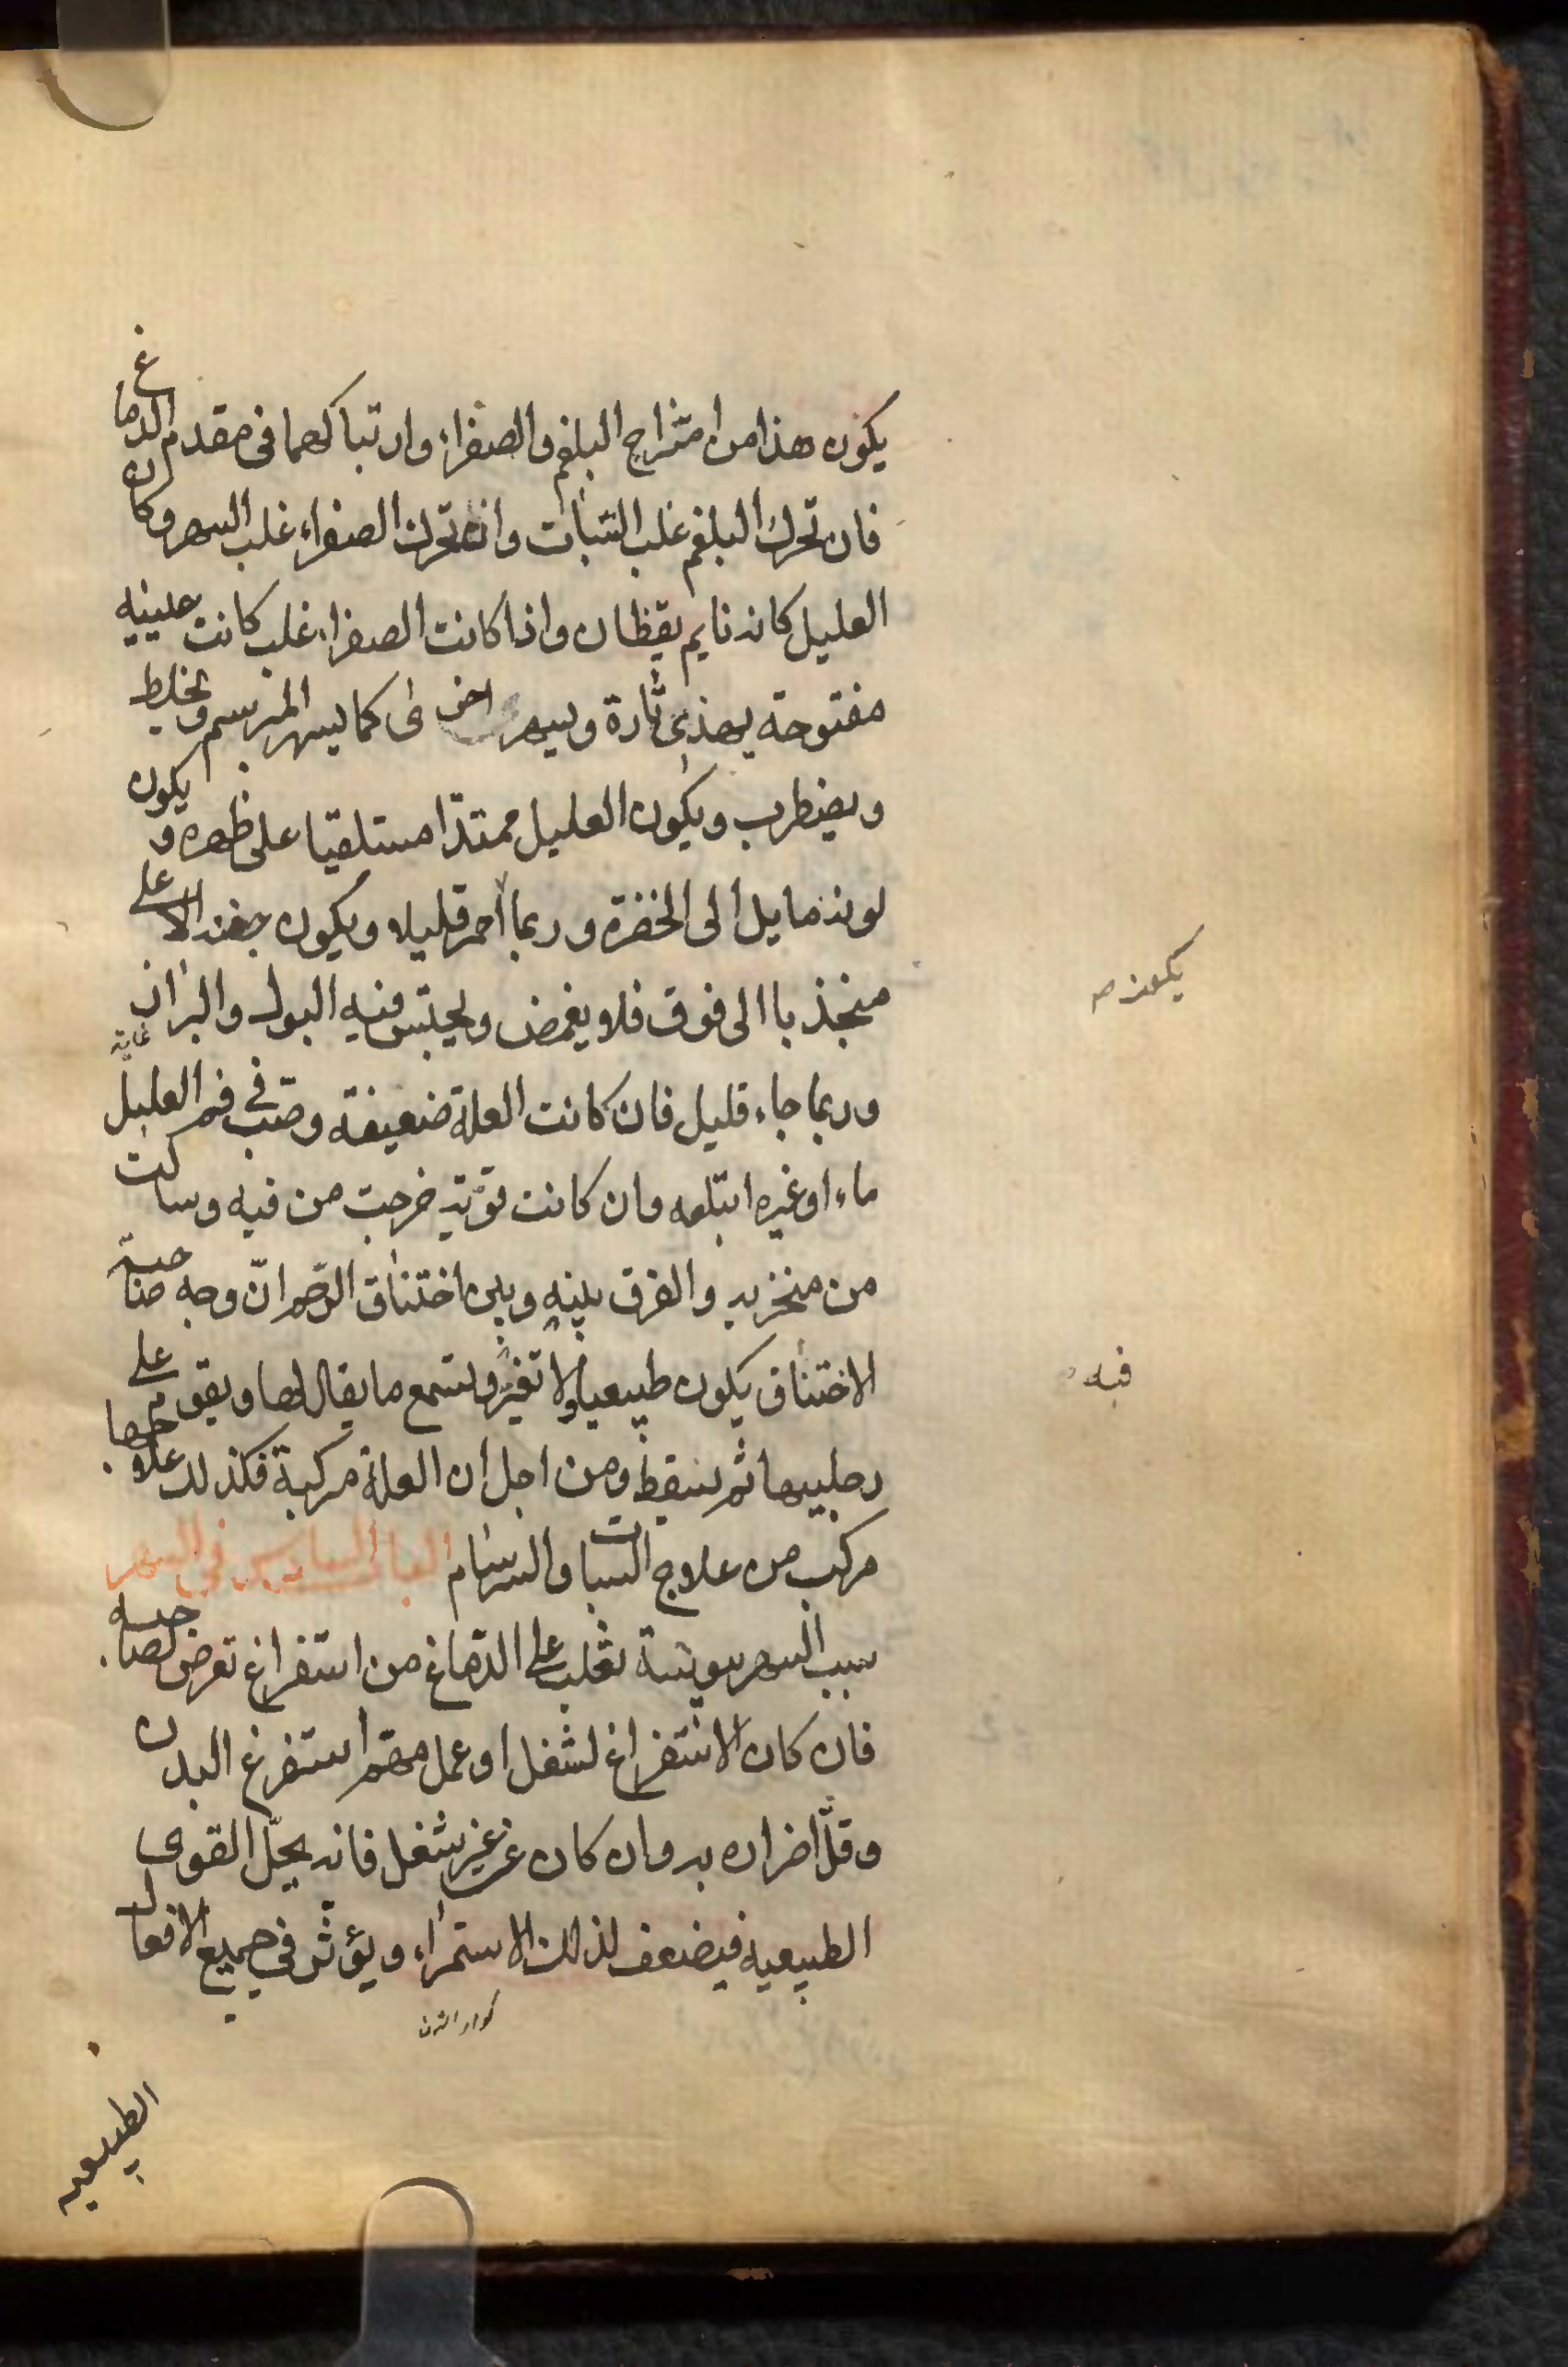 يكون هذا من امتزاج البلغم والصفراء وارتباكهما فى مقدم الدماغ
فان تحرك البلغم غلب السّبات وان تحرك الصفراء غلب السهر وكان
العليل كانه نايم يقظان واذا كانت الصفراء غلب كانت عينيه
مفتوحة يهذى تارة ويسهر اخرى كما يسهر المبرسم ويخلط
ويضطرب ويكون العليل ممتدّا مستلقيا على ظهره ويكون
لونه مايل الى الخضرة وربما أحمر قليلا ويكون جفنه الاعلى
منجذبا الى فوق فلا يغمض ويحتبس فيه البول والبراز
غاية
وربما جاء قليل فان كانت العلة ضعيفة وصّب في فم العليل
ماء او غيره ابتلعه وان كانت قوّية خرجت من فيه وسالت
من منخريه والفرق بينه وبين اختناق الرّحم انّ وجه صاحبة
الاختناق يكون طبيعيا ولا تغيّر وتسمع ما يقال لها ويقوم على
فيه
رجليها ثم يسقط ومن اجل ان العلة مركبة فكذلك علاجها
مركب من علاج السبات والسرسام الباب السادس في السهر
سبب السهر يبوسة تغلب على الدّماغ من استفراغ تعرض لصاحبه
فان كان الاستفراغ لشغل او عمل مهّم استفرغ البدن
وقلّ اضراره به وان كان عن غير شغل فانه يحلّ القوى
الطبيعيه فيضعف لذلك الاستمراء ويؤثر في جميع الافعال
الطبيعيه